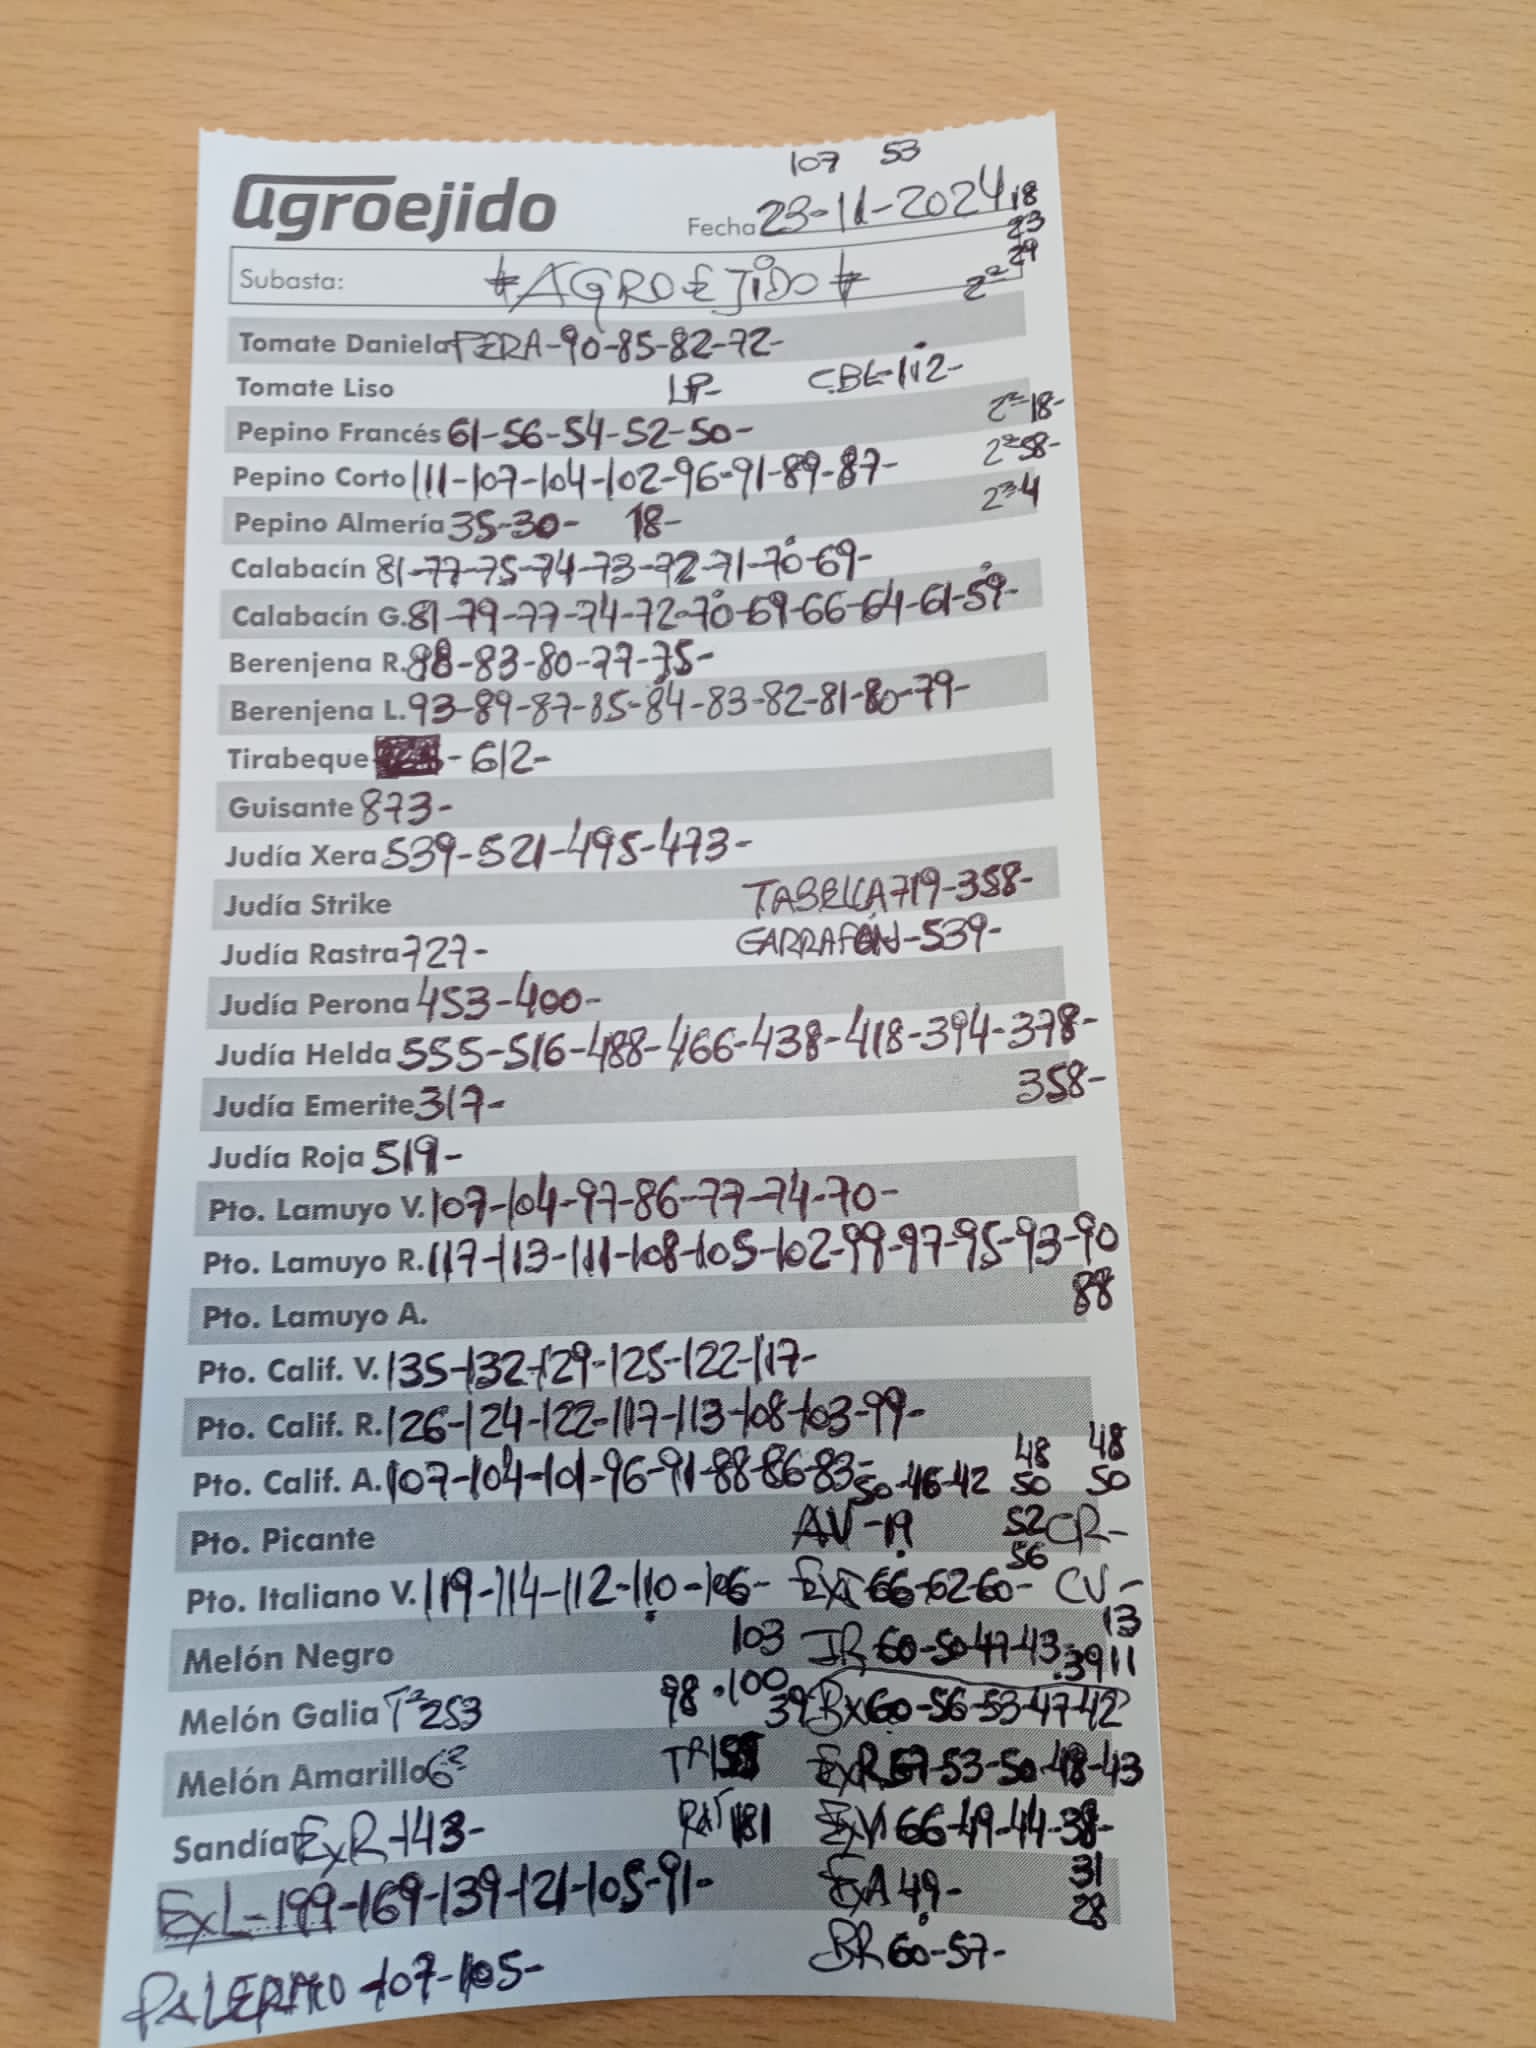 107 53
agroejido
Fecha 23-11-2024 18
23
29
Subasta: #AGROEJIDO# 2ª
Tomate Daniela PERA-90-85-82-72-
Tomate Liso LP- CBL-112-
Pepino Francés 61-56-54-52-50- 2ª-18-
Pepino Corto 111-107-104-102-96-91-89-87- 2ª58-
Pepino Almería 35-30- 18- 2ª34
Calabacín 81-77-75-74-73-72-71-70-69-
Calabacín G. 81-79-77-74-72-70-69-66-64-61-59-
Berenjena R. 88-83-80-77-75-
Berenjena L. 93-89-87-85-84-83-82-81-80-79-
Tirabeque - 612-
Guisante 873-
Judía Xera 539-521-495-473-
Judía Strike TABELLA 719-358-
Judía Rastra 727- GARRAFÓN-539-
Judía Perona 453-400-
Judía Helda 555-516-488-466-438-418-394-378-
Judía Emerite 317- 358-
Judía Roja 519-
Pto. Lamuyo V. 107-104-97-86-77-74-70-
Pto. Lamuyo R. 117-113-111-108-105-102-99-97-95-93-90
Pto. Lamuyo A. 88
Pto. Calif. V. 135-132-129-125-122-117-
Pto. Calif. R. 126-124-122-117-113-108-103-99-
48 48
Pto. Calif. A. 107-104-101-96-91-88-86-83- 50-46-42 50 50
Pto. Picante AV-19 52 CR-
56
Pto. Italiano V. 119-114-112-110-106- 66-62-60- CV-
13
Melón Negro 103 JR 60-50-47-43-39 11
Melón Galia Tª253 98-100 39 Bx 60-56-53-47-42
Melón Amarillo 6ª TR ExR 57-53-50-48-43
Sandía ExR-143- RAT 181 ExV 66-49-44-38-
31
ExL-199-169-139-121-105-91- ExA 49- 28
BR 60-57-
PALERMO-107-105-